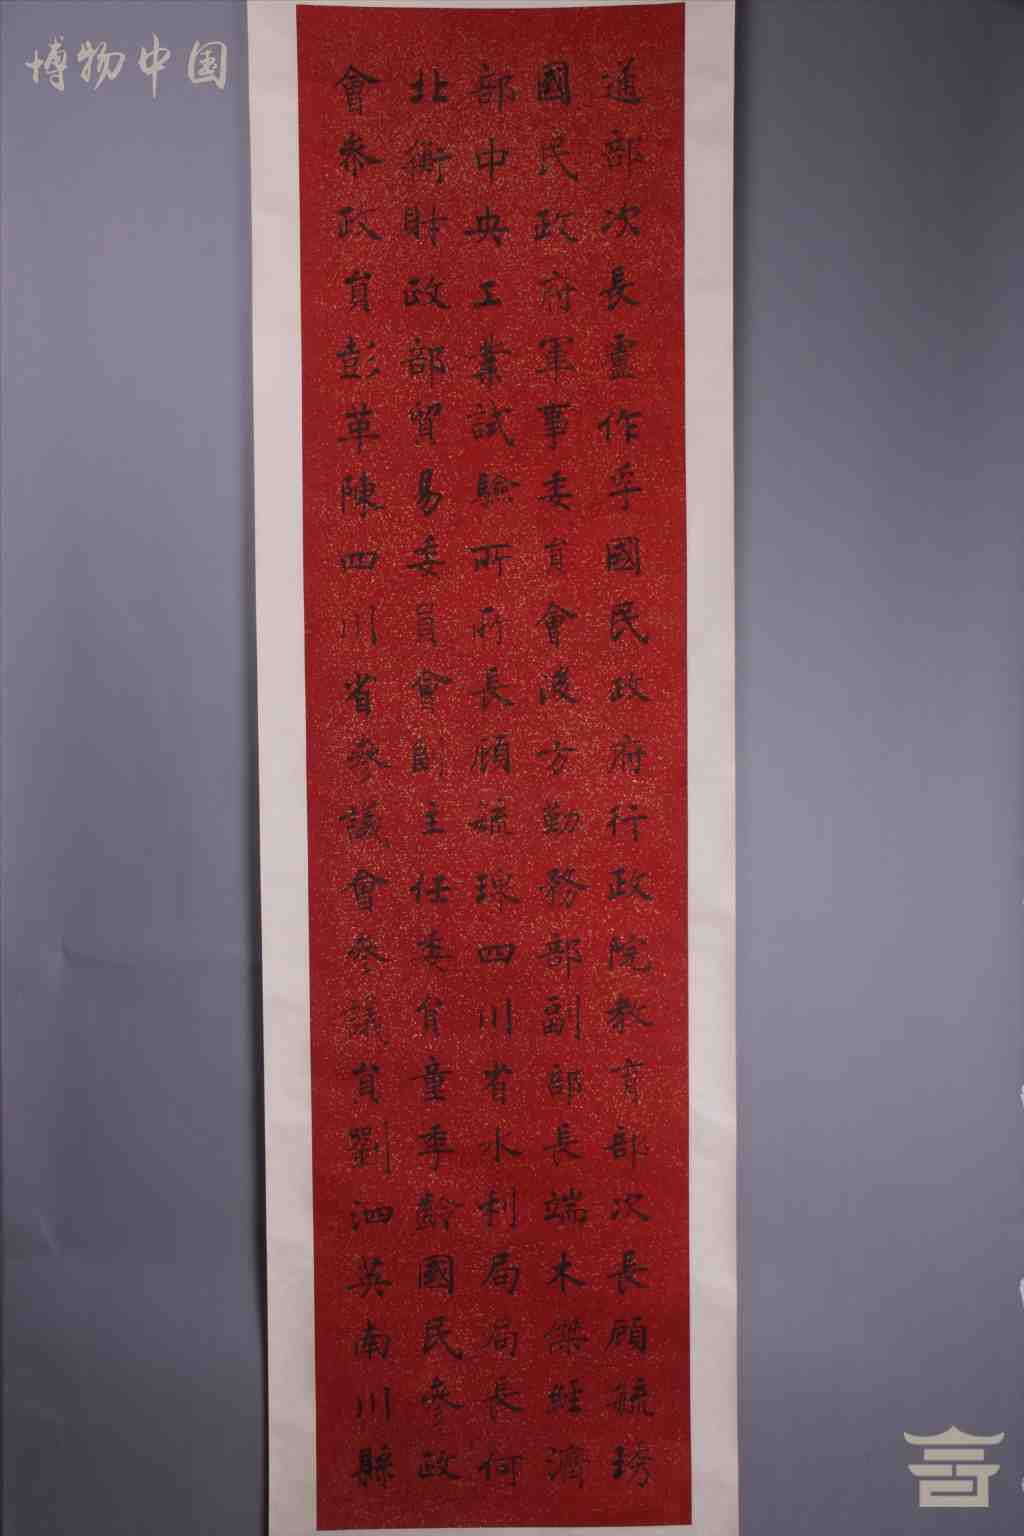 博物中国
通部次長盧作孚國民政府行政院教育部次長顧毓琇
國民政府軍事委員會後方勤務部副部長端木傑經濟
部中央工業試驗所所長顧毓瑔四川省水利局局長何
北衡財政部貿易委員會副主任委員童季齡國民參政
會參政員彭革陳四川省參議會參議員劉泗英南川縣